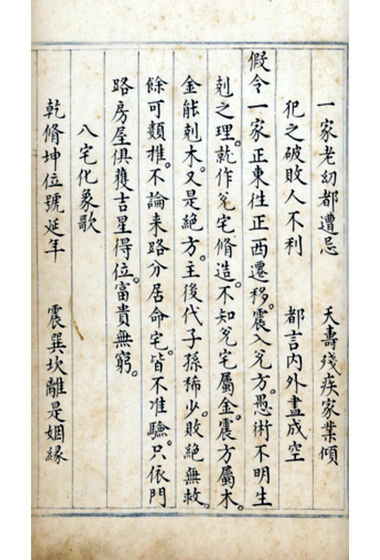 一家老幼都遭忌　夭壽殘疾家業傾
犯之破敗人不利　都言内外盡成空
假令一家正東往正西遷移。震入兌方。愚術不明生
剋之理。就作兌宅脩造。不知兌宅屬金。震方屬木。
金能剋木。又是絶方。主後代子孫稀少。敗絶無救。
餘可類推。不論来路分居命宅。皆不准驗。只依門
路房屋俱獲吉星得位。富貴無窮。
八宅化象歌
乾脩坤位號延年　震巽坎離是姻緣